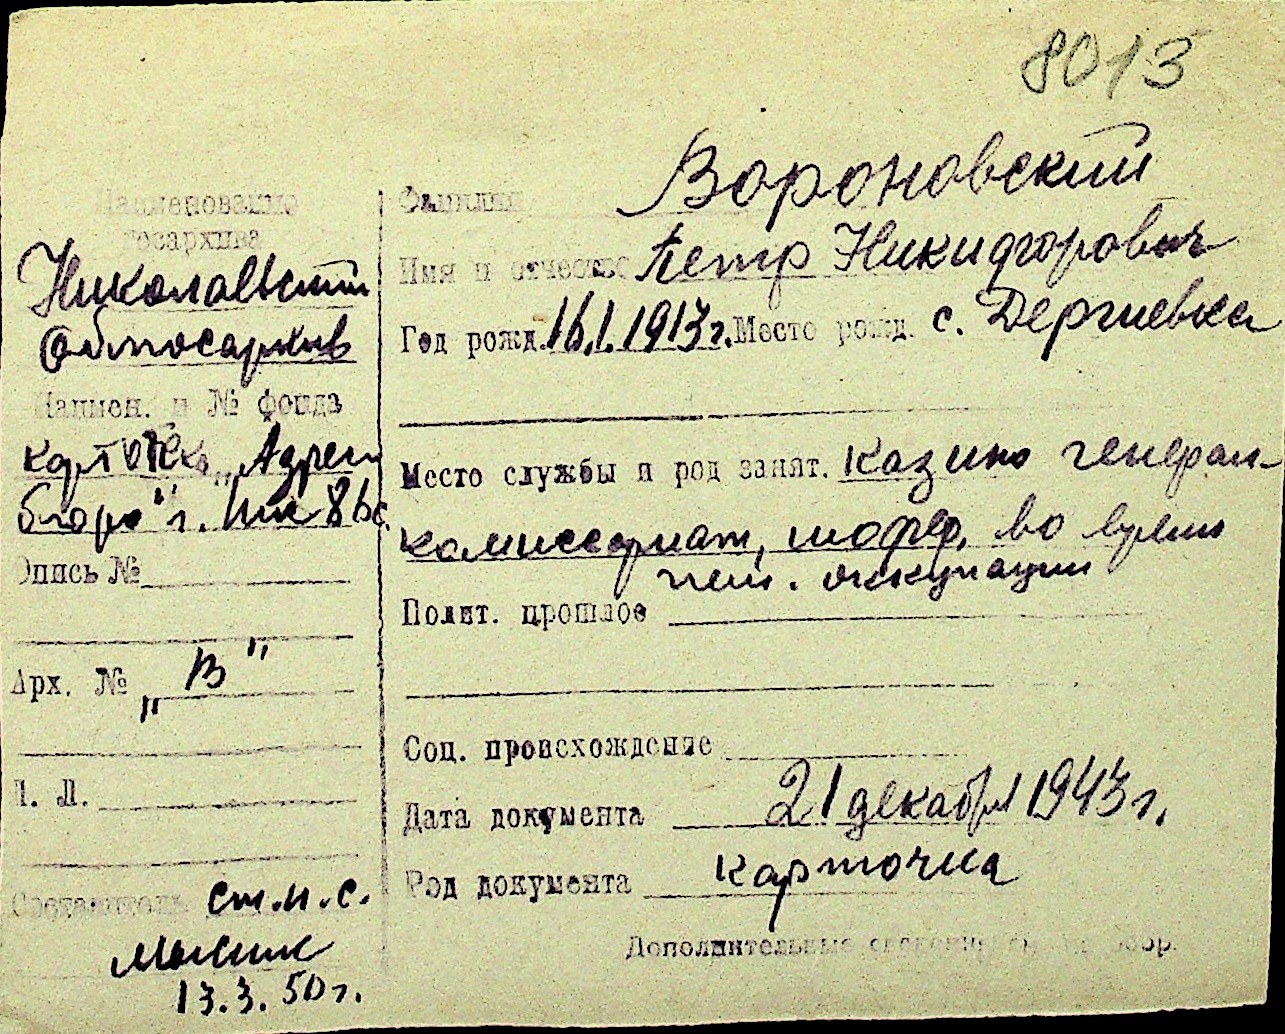 8013
Наименование
госархива
Николаевский
Облгосархив
Наимен. и № фонда
картотека „Адрес
бюро" г.
Опись №
Арх. № „В"
Л. Л.
Составитель ст.н.с.
13.3.50г.
Фамилия Вороновский
Имя и отчество Петр Никифорович
Год рожд. 16.1.1913г. Место рожд. с. Дергиевка
Место службы и род занят. казино генерал-
комиссариат, шофер, во время
нем. оккупации
Полит. прошлое
Соц. происхождение
Дата документа 21 декабря 1943г.
Род документа карточка
Дополнительные